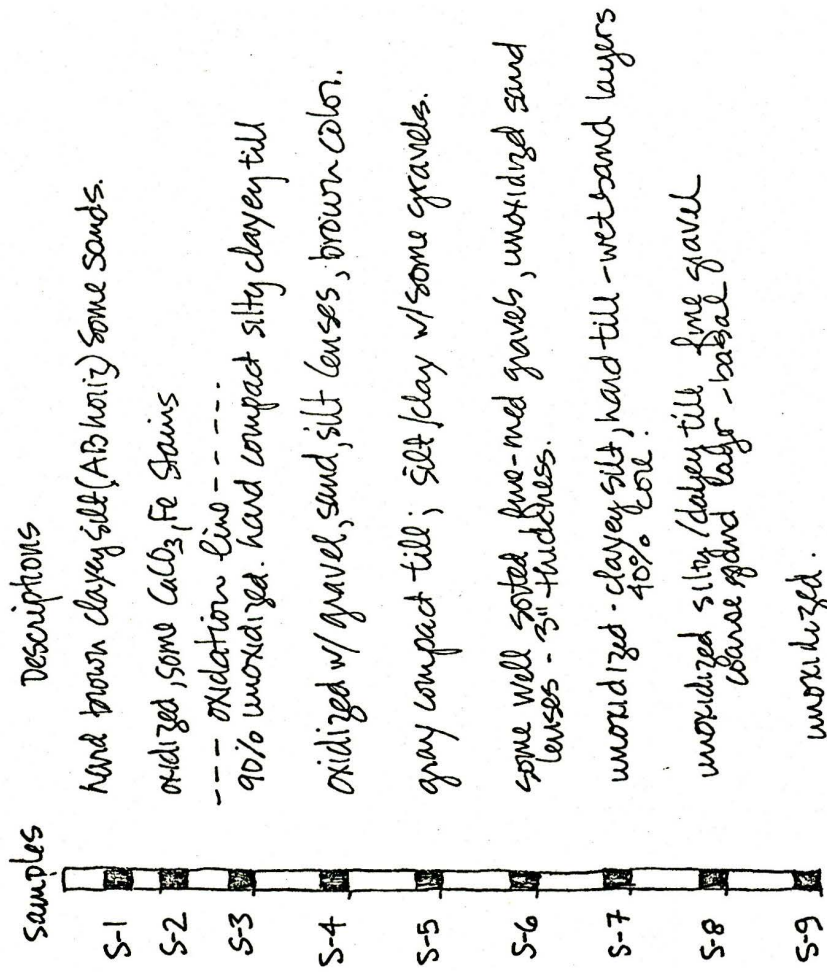 Samples Descriptions
S-1 hard brown clayey silt (AB horiz) some sands.
S-2 oxidized, some CaCO3, Fe Stains
---- oxidation line -----
S-3 90% unoxidized. hard compact silty clayey till
S-4 oxidized w/ gravel, sand, silt lenses, brown color.
S-5 gray compact till; silt/clay w/ some gravels.
S-6 some well sorted fine-med gravels, unoxidized sand
lenses - 3" thickness.
S-7 unoxidized - clayey silt, hard till - wet sand layers
40% core.
S-8 unoxidized silty/clayey till fine gravel
coarse sand layer - basal
S-9 unoxidized.